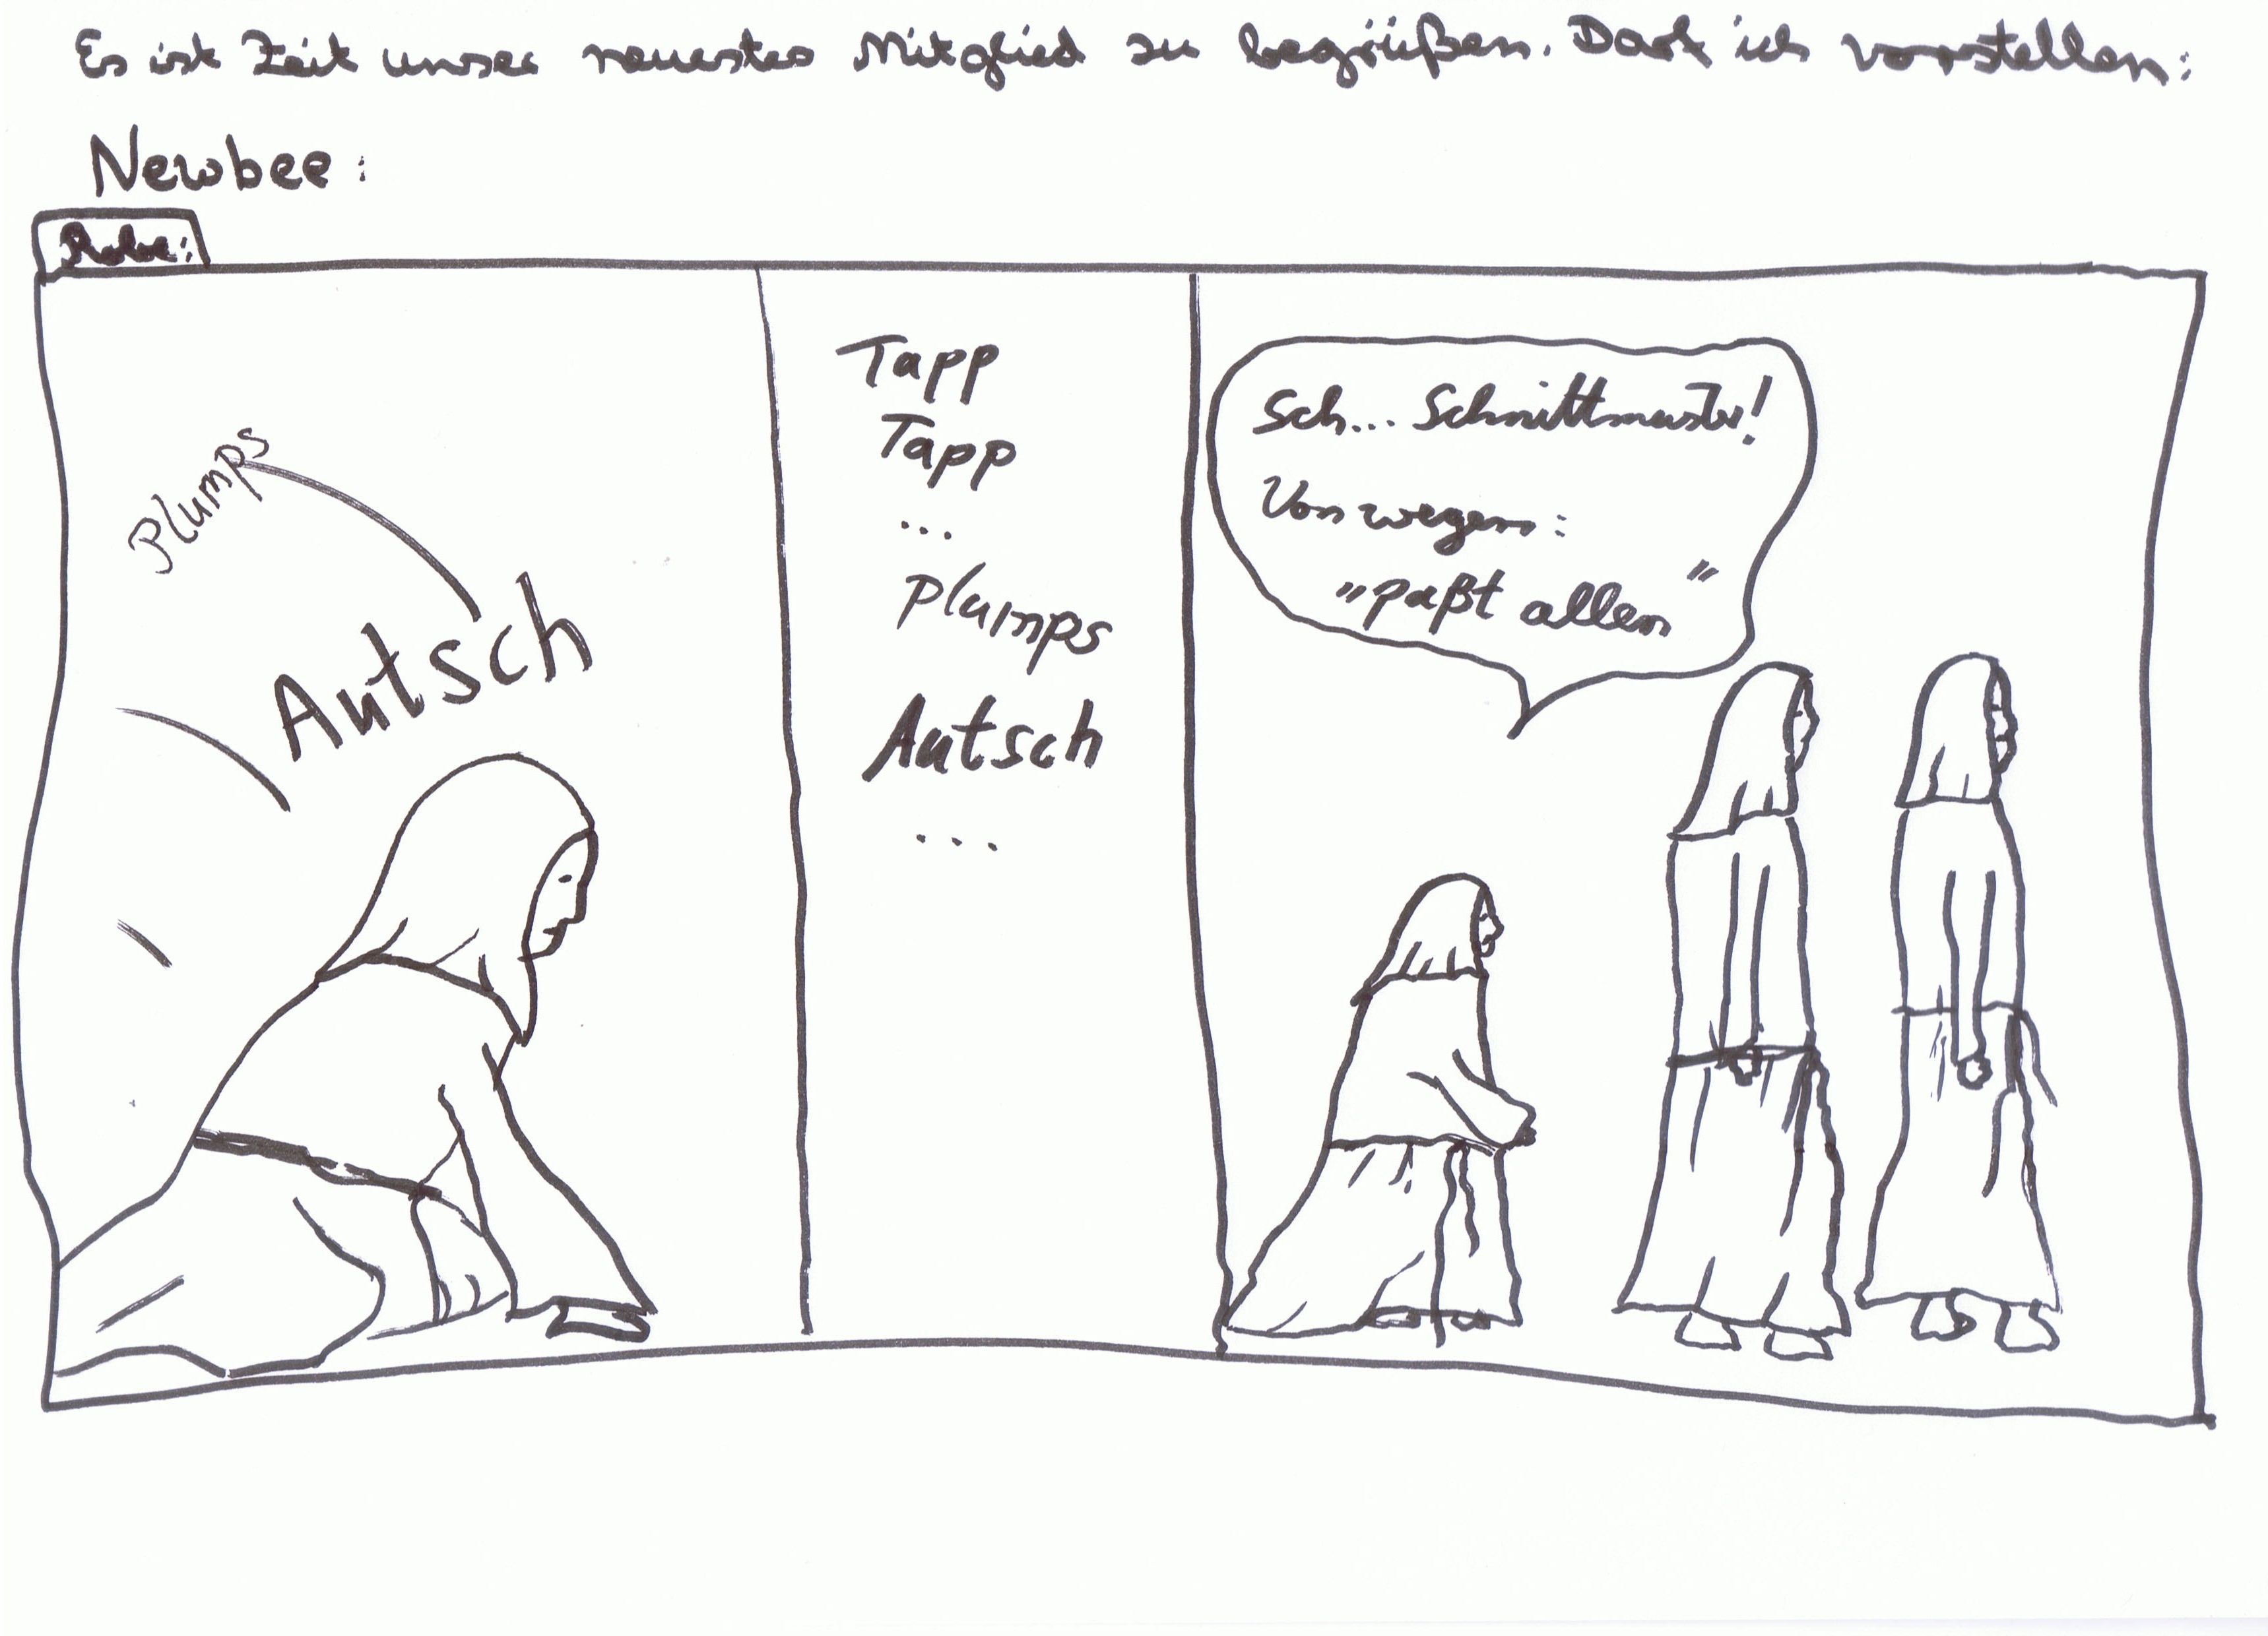 Es ist Zeit unser neuestes Mitglied zu begrüßen. Darf ich vorstellen:
Newbee:
Robe:
Plumps
Autsch
Tapp
Tapp
...
Plumps
Autsch
...
Sch... Schnittmuster!
Von wegen:
„paßt allen"